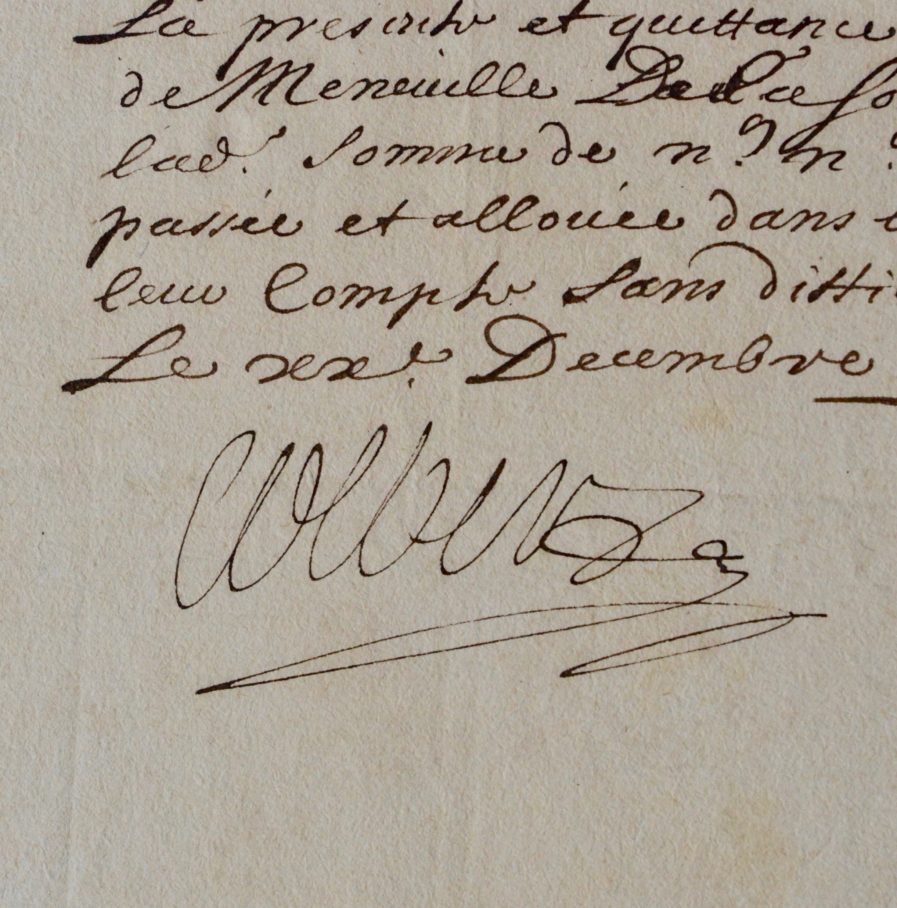 La presente et quittance
de Meneuille De la so
lad. somme de n.^c n.
passée et allouée dans
leur Compte Sans diffi
Le xx.^e Decembre
Colbert